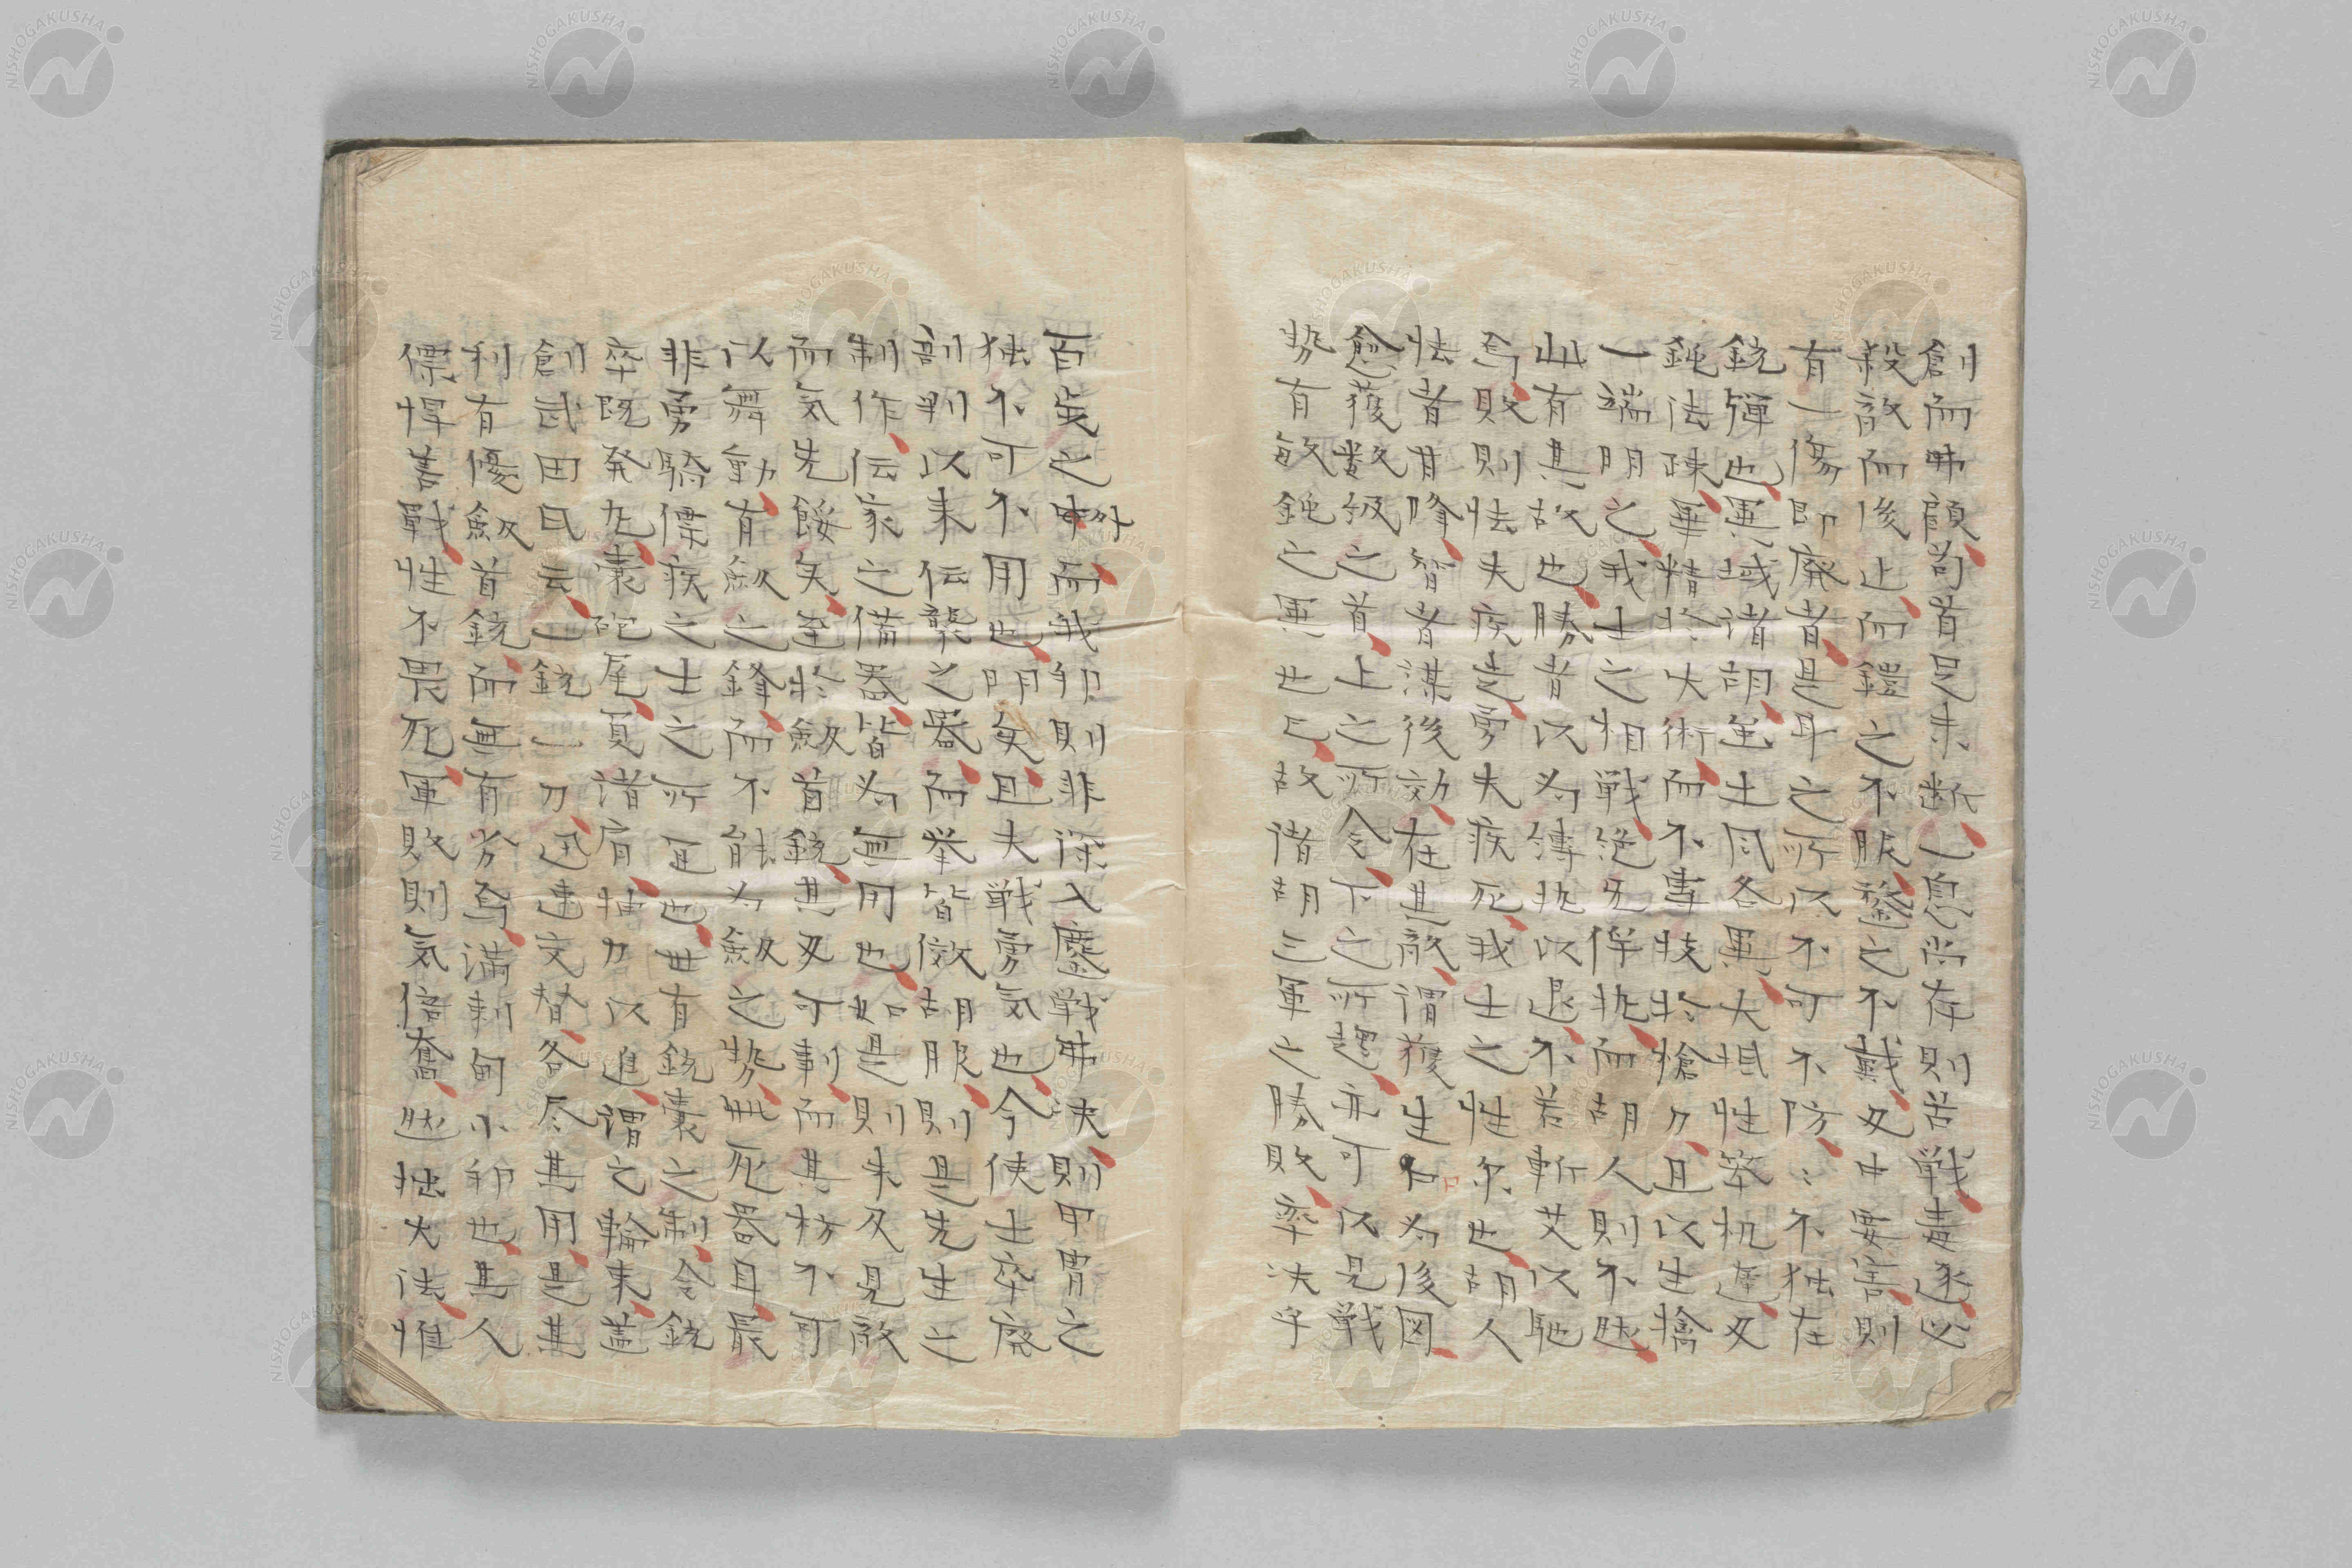 創而弗顧苟首足未断一息尚存則苦戦毒逐必
殺敵而後止而鎧之不服鍪之不戴又中要害則
有一傷即廃者是耳之所以不可不防〻不独在
銃弾也異域諸胡虽土風各異大抵性笨机遅又
鈍法疎畢精於火術而不事技於槍刀且以生擒
一端明之我士之相戦絶无佯北而胡人則不然
此有其故也勝者以為縛北以退不若斬艾以馳
焉敗則怯夫疾走勇夫疾死我士之性尓也胡人
怯者甘降智者謀後効在其敵謂獲生口為後図
愈獲数級之首上之所令下之所趨亦可以見戦
勢有敏鈍之異也已故諸胡三軍之勝敗率决乎
百歩之外而我邦則非深入鏖戦弗决則甲冑之
独不可不用也明矣且夫戦勇気也今使士卒廃
剖判以来伝襲之器而挙皆傚胡服則是先生之
制作伝家之備器皆為無用也如是則未及見敵
而気先餒矣至於劔首銃其刃可刺而其柄不可
以舞動有劔之鋒而不能為劔之勢此死器耳最
非勇驕慓疾之士之所宜也世有銃嚢之制令銃
卒既発九嚢砲尾負諸肩抽刀以進謂之輪束蓋
創武田氏云一銃一刀迅速交替各尽其用是其
利有優劔首銃而無有劣焉満刺甸小邦也其人
慓悍善戦性不畏死軍敗則気倍奮然拙火法惟